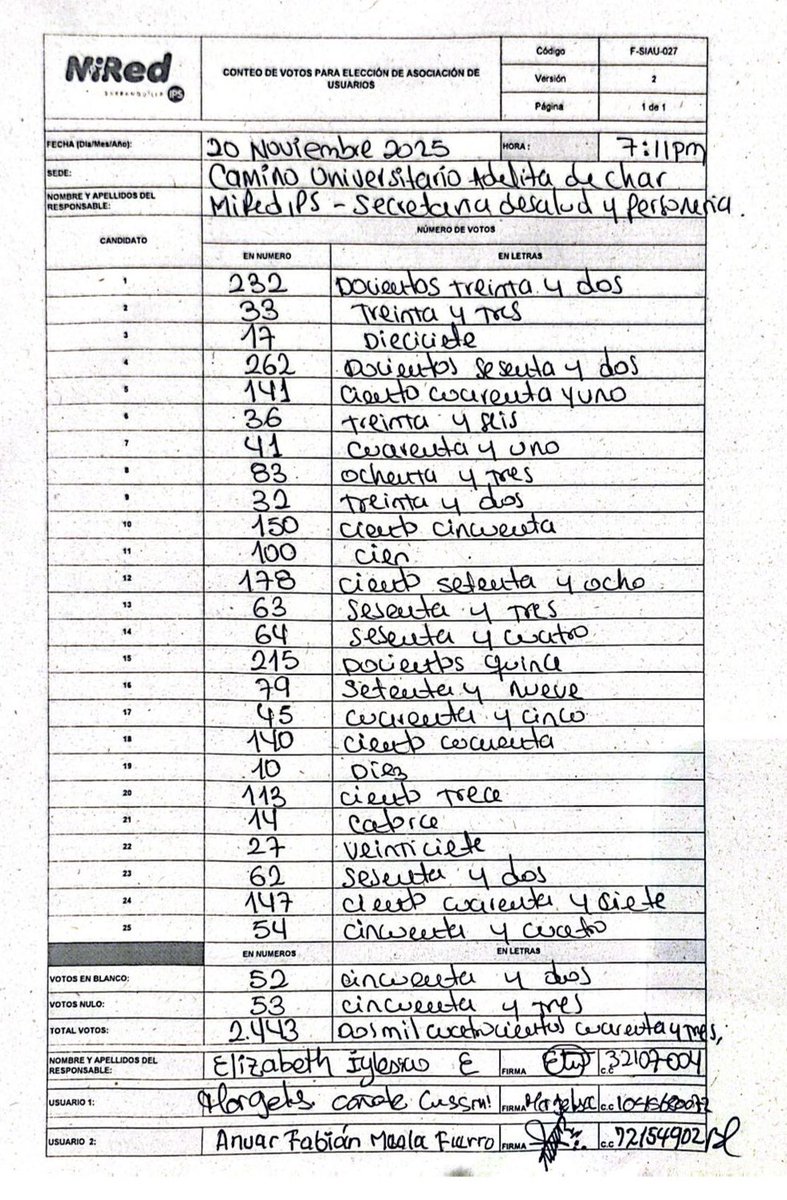 MiRed
BARRANQUILLA IPS
CONTEO DE VOTOS PARA ELECCIÓN DE ASOCIACIÓN DE
USUARIOS
Código F-SIAU-027
Versión 2
Página 1 de 1
FECHA (Día/Mes/Año): 20 Noviembre 2025 HORA: 7:11pm
SEDE: Camino Universitario Adelita de char
NOMBRE Y APELLIDOS DEL
RESPONSABLE: MiRed IPS - Secretaria de salud y personeria.
CANDIDATO NÚMERO DE VOTOS
EN NUMERO EN LETRAS
1 232 Docientos treinta y dos
2 33 Treinta y Tres
3 17 Dieciciete
4 262 Docientos sesenta y dos
5 141 Ciento cuarenta y uno
6 36 treinta y seis
7 41 cuarenta y uno
8 83 ochenta y tres
9 32 treinta y dos
10 150 ciento cincuenta
11 100 cien
12 178 ciento setenta y ocho
13 63 sesenta y tres
14 64 sesenta y cuatro
15 215 Docientos quince
16 79 setenta y nueve
17 45 cuarenta y cinco
18 140 ciento cocuenta
19 10 Diez
20 113 ciento trece
21 14 catorce
22 27 veinticiete
23 62 sesenta y dos
24 147 ciento cuarenta y siete
25 54 cincuenta y cuatro
EN NUMEROS EN LETRAS
VOTOS EN BLANCO: 52 cincuenta y dos
VOTOS NULO: 53 cincuenta y tres
TOTAL VOTOS: 2.443 Dos mil cuatrocientos cuarenta y tres,
NOMBRE Y APELLIDOS DEL
RESPONSABLE: Elizabeth Iglesias E FIRMA C.C 32107004
USUARIO 1: FIRMA C.C
USUARIO 2: Anuar Fabián FIRMA C.C 72154902